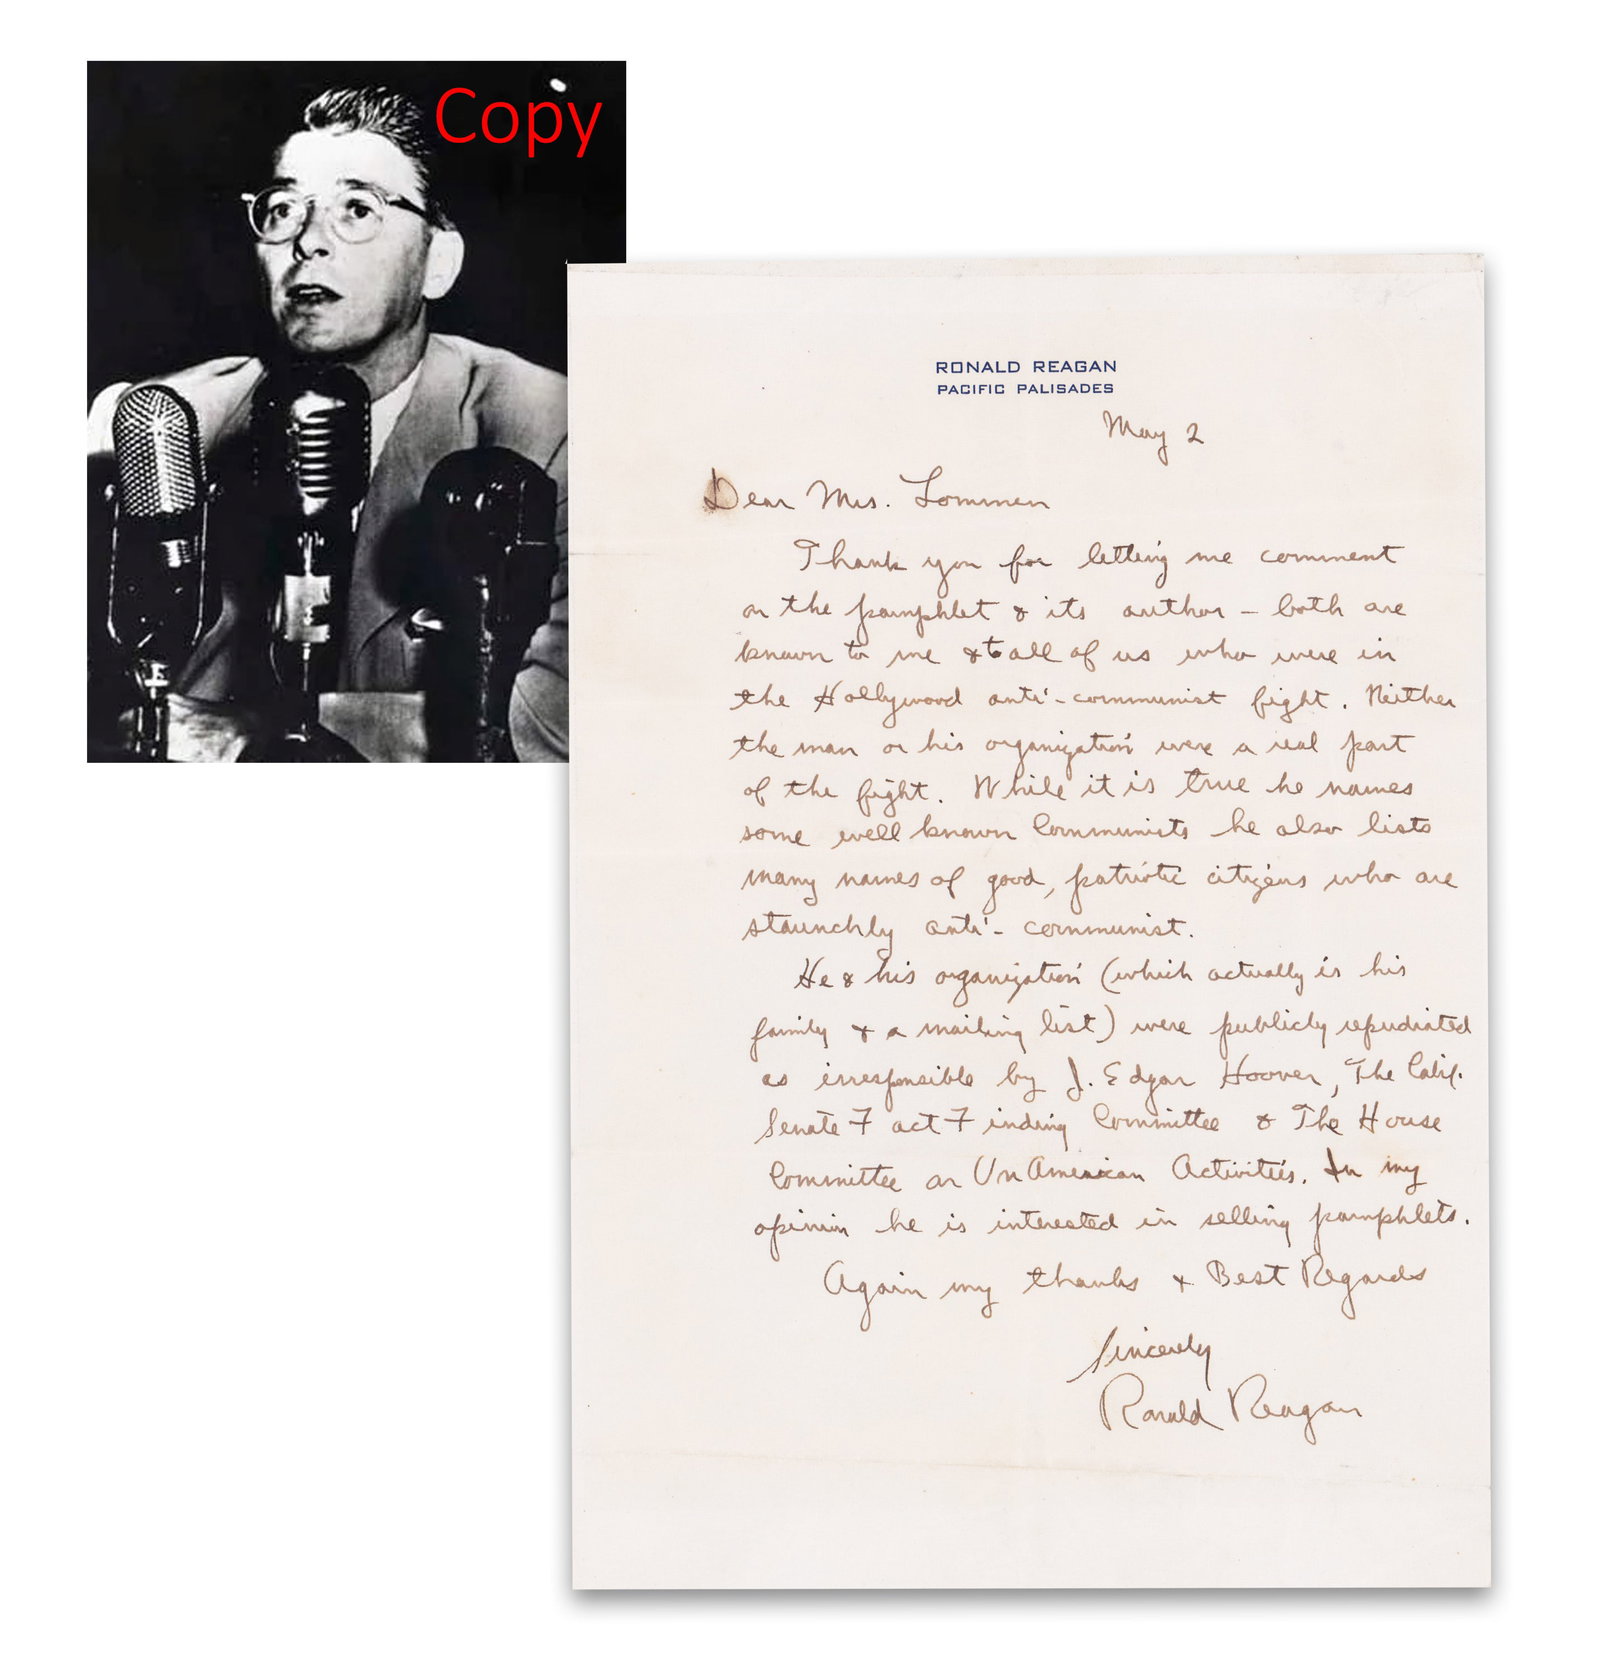 Copy
RONALD REAGAN
PACIFIC PALISADES
May 2
Dear Mrs. Lommen
Thank you for letting me comment
on the pamphlet & its author – both are
known to me & to all of us who were in
the Hollywood anti-communist fight. Neither
the man or his organization were a real part
of the fight. While it is true he names
some well known Communists he also lists
many names of good, patriotic citizens who are
staunchly anti-communist.
He & his organization (which actually is his
family & a mailing list) were publicly repudiated
as irresponsible by J. Edgar Hoover, The Calif.
Senate Fact Finding Committee & The House
Committee on UnAmerican Activities. In my
opinion he is interested in selling pamphlets.
Again my thanks & Best Regards
Sincerely
Ronald Reagan